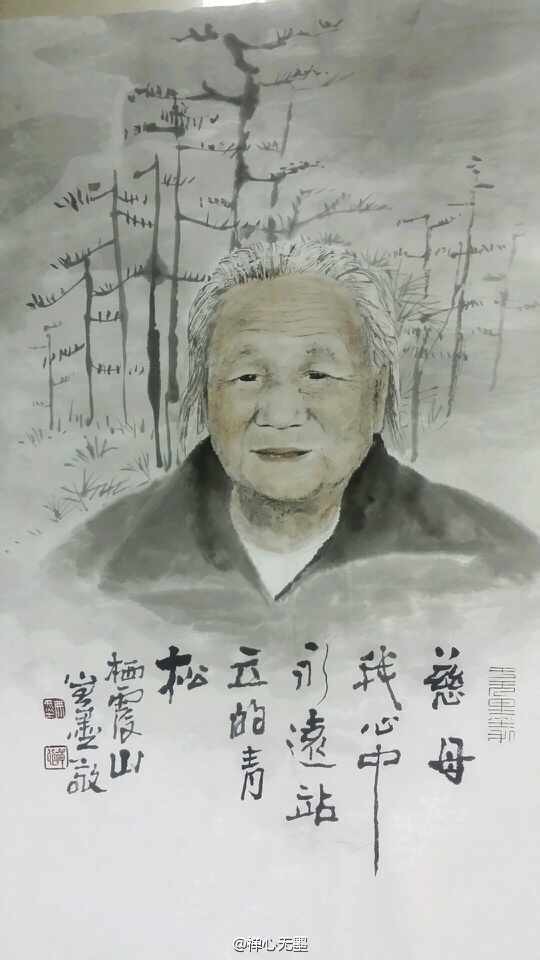 慈母
我心中
永遠站
立的青
松
栖霞山
@禅心无墨